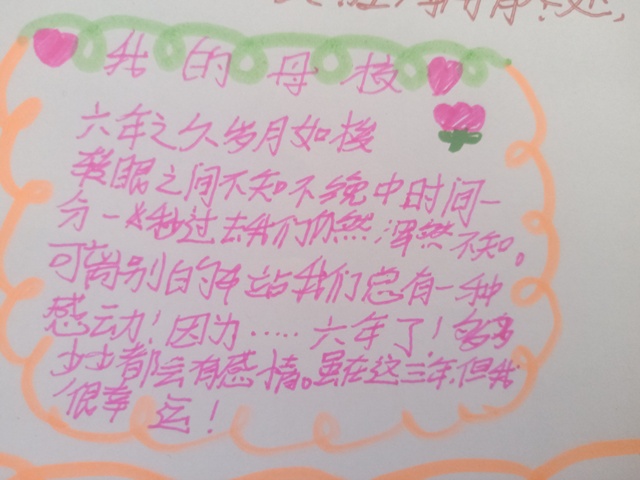 我的母校
六年之久岁月如梭
转眼之间不知不觉中时间一
分一秒过去我们仍然浑然不知。
可离别的车站我们总有一种
感动！因为……六年了！多多
少少都会有感情。虽在这三年,但我
很幸运！